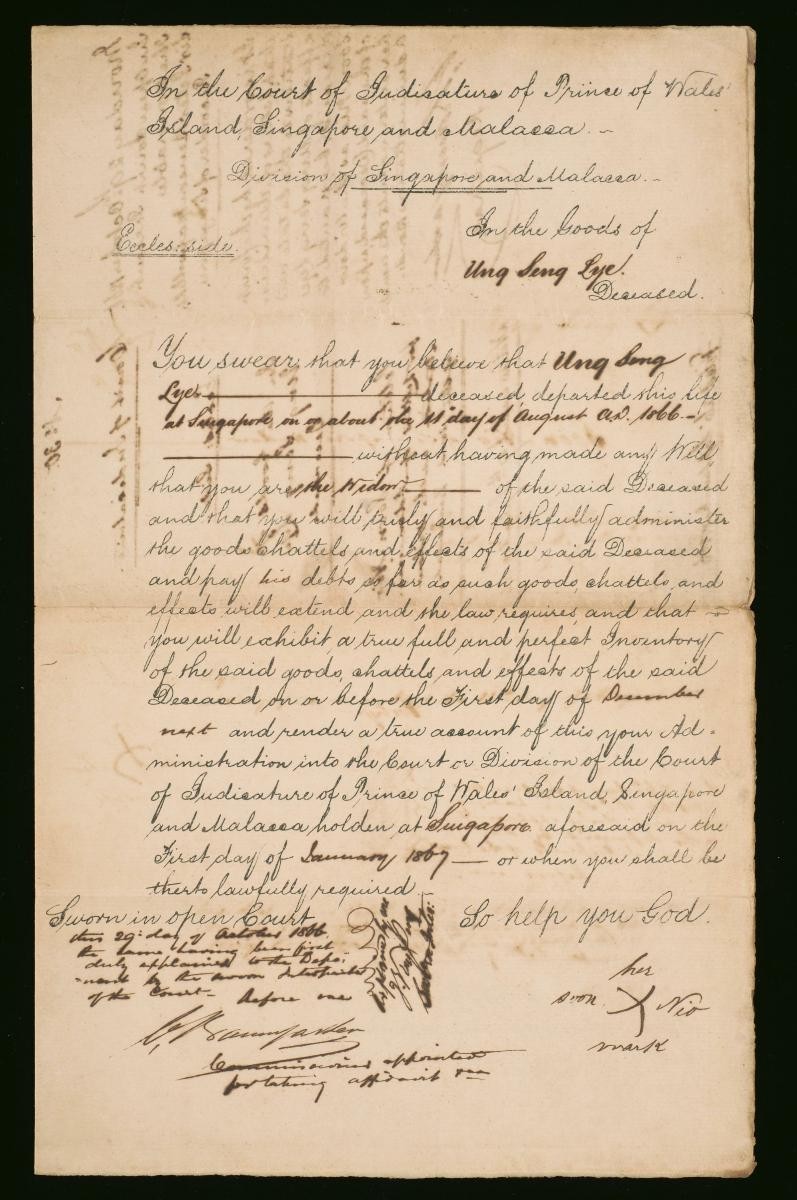 In the Court of Judicature of Prince of Wales'
Island, Singapore and Malacca. -
Division of Singapore and Malacca. -
In the Goods of
Eccles: side.
Ung Seng Lye.
Deceased.
You swear that you believe that Ung Seng
Lye deceased, departed this life
at Singapore on or about the 11 day of August A.D. 1866 -
without having made any Will,
that you are the Widow of the said Deceased
and that you will truly and faithfully administer
the goods chattels and effects of the said Deceased
and pay his debts so far as such goods, chattels, and
effects will extend and the law requires, and that
you will exhibit a true full and perfect Inventory
of the said goods, chattels, and effects of the said
Deceased on or before the First day of December
next and render a true account of this your Ad=
ministration into the Court or Division of the Court
of Judicature of Prince of Wales' Island, Singapore
and Malacca holden at Singapore aforesaid on the
First day of January 1867 — or when you shall be
therto lawfully required.
Sworn in open Court
this 29: day of October 1866
the same having been first
duly explained to the Depo-
-nent by the sworn Interpreter
of the Court - Before me
So help you God.
her
Soon X Nio
mark
Explained by me
C. Baumgarten
Commissioner appointed
for taking affidavit &ca